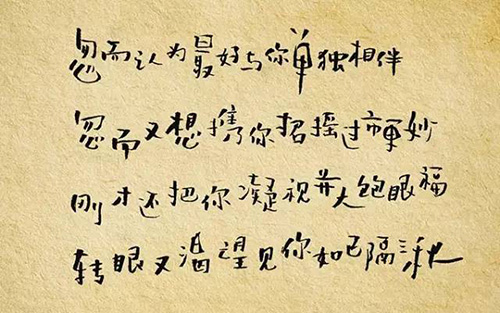 忽而认为最好与你单独相伴
忽而又想携你招摇过市更妙
刚才还把你凝视并大饱眼福
转眼又渴望见你如已隔三秋